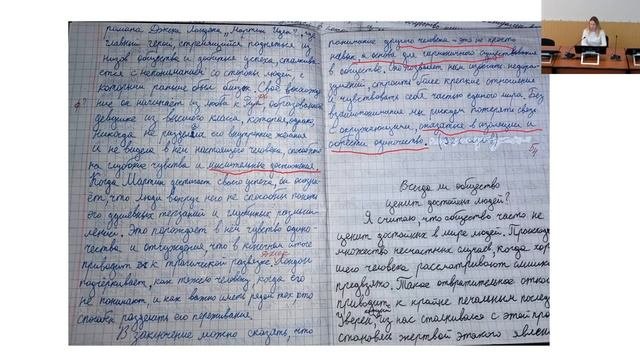 романа Джека Лондона „Мартин Иден", где
главный герой, стремящийся подняться из
низов общества и достичь успеха, сталкива-
ется с непониманием со стороны людей, с
которыми раньше был близок. Своё восхожде-
ние он начинает из любви к Руфи, образованной
девушке из высшего класса, которая, однако,
никогда не разделяла его внутренние желания
и не видела в нём настоящего человека, способного
на глубокие чувства и мыслительные достижения.
Когда Мартин достигает своего успеха, он осозна-
ёт, что люди вокруг него не способны понять
его душевных терзаний и глубинных размыш-
лений. Это порождает в нём чувство одино-
чества и отчуждения, что в конечном итоге
приводит к трагической развязке. Лондон
подчеркивает, как тяжело человеку, когда его
не понимают, и как важно иметь рядом тех, кто
способен разделить его переживания.
В заключение можно сказать, что
понимание другого человека – это не просто
навык, а основа для гармоничного существования
в обществе. Оно позволяет нам избегать недораз-
умений, строить более крепкие отношения
и чувствовать себя частью единого мира. Без
взаимопонимания мы рискуем потерять связь
с окружающими, оказаться в изоляции и
остаться одиночество.
Всегда ли общество
ценит достойных людей?
Я считаю, что общество часто не
ценит достойных в мире людей. Происход
множество несчастных случаев, когда хор
шего человека рассматривают слишком
предвзято. Такое отвратительное отнош
приводит к крайне печальным послед
Уверен, из нас сталкивался с этой про
становясь жертвой этакого явлен